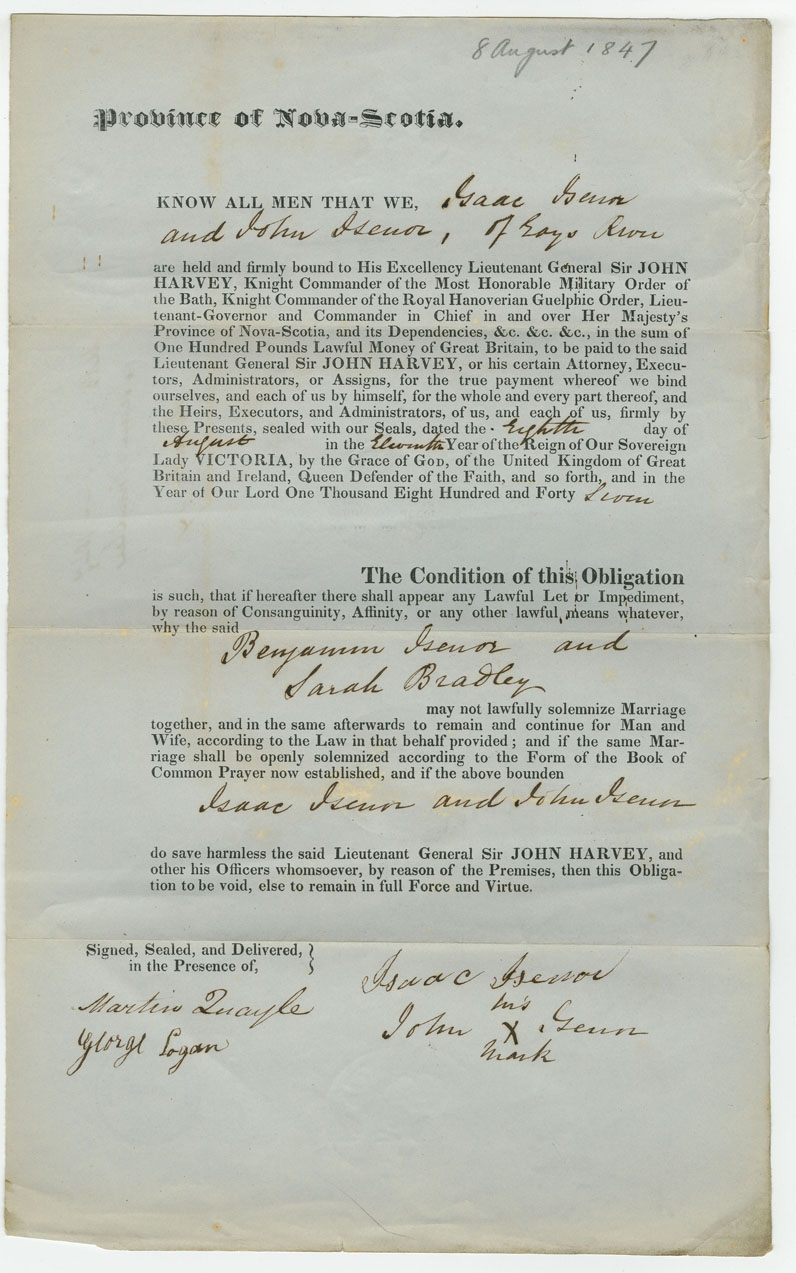 8 August 1847
Province of Nova-Scotia.
KNOW ALL MEN THAT WE, Isaac Isenor
and John Isenor, of Gays River
are held and firmly bound to His Excellency Lieutenant General Sir JOHN
HARVEY, Knight Commander of the Most Honorable Military Order of
the Bath, Knight Commander of the Royal Hanoverian Guelphic Order, Lieu-
tenant-Governor and Commander in Chief in and over Her Majesty's
Province of Nova-Scotia, and its Dependencies, &c. &c. &c., in the sum of
One Hundred Pounds Lawful Money of Great Britain, to be paid to the said
Lieutenant General Sir JOHN HARVEY, or his certain Attorney, Execu-
tors, Administrators, or Assigns, for the true payment whereof we bind
ourselves, and each of us by himself, for the whole and every part thereof, and
the Heirs, Executors, and Administrators, of us, and each of us, firmly by
these Presents, sealed with our Seals, dated the Eighth day of
August in the Eleventh Year of the Reign of Our Sovereign
Lady VICTORIA, by the Grace of GOD, of the United Kingdom of Great
Britain and Ireland, Queen Defender of the Faith, and so forth, and in the
Year of Our Lord One Thousand Eight Hundred and Forty Seven
The Condition of this Obligation
is such, that if hereafter there shall appear any Lawful Let or Impediment,
by reason of Consanguinity, Affinity, or any other lawful means whatever,
why the said
Benjamin Isenor and
Sarah Bradley
may not lawfully solemnize Marriage
together, and in the same afterwards to remain and continue for Man and
Wife, according to the Law in that behalf provided; and if the same Mar-
riage shall be openly solemnized according to the Form of the Book of
Common Prayer now established, and if the above bounden
Isaac Isenor and John Isenor
do save harmless the said Lieutenant General Sir JOHN HARVEY, and
other his Officers whomsoever, by reason of the Premises, then this Obliga-
tion to be void, else to remain in full Force and Virtue.
Signed, Sealed, and Delivered,
in the Presence of,
Martin Quayle
George Logan
Isaac Isenor
his
John X Isenor
mark